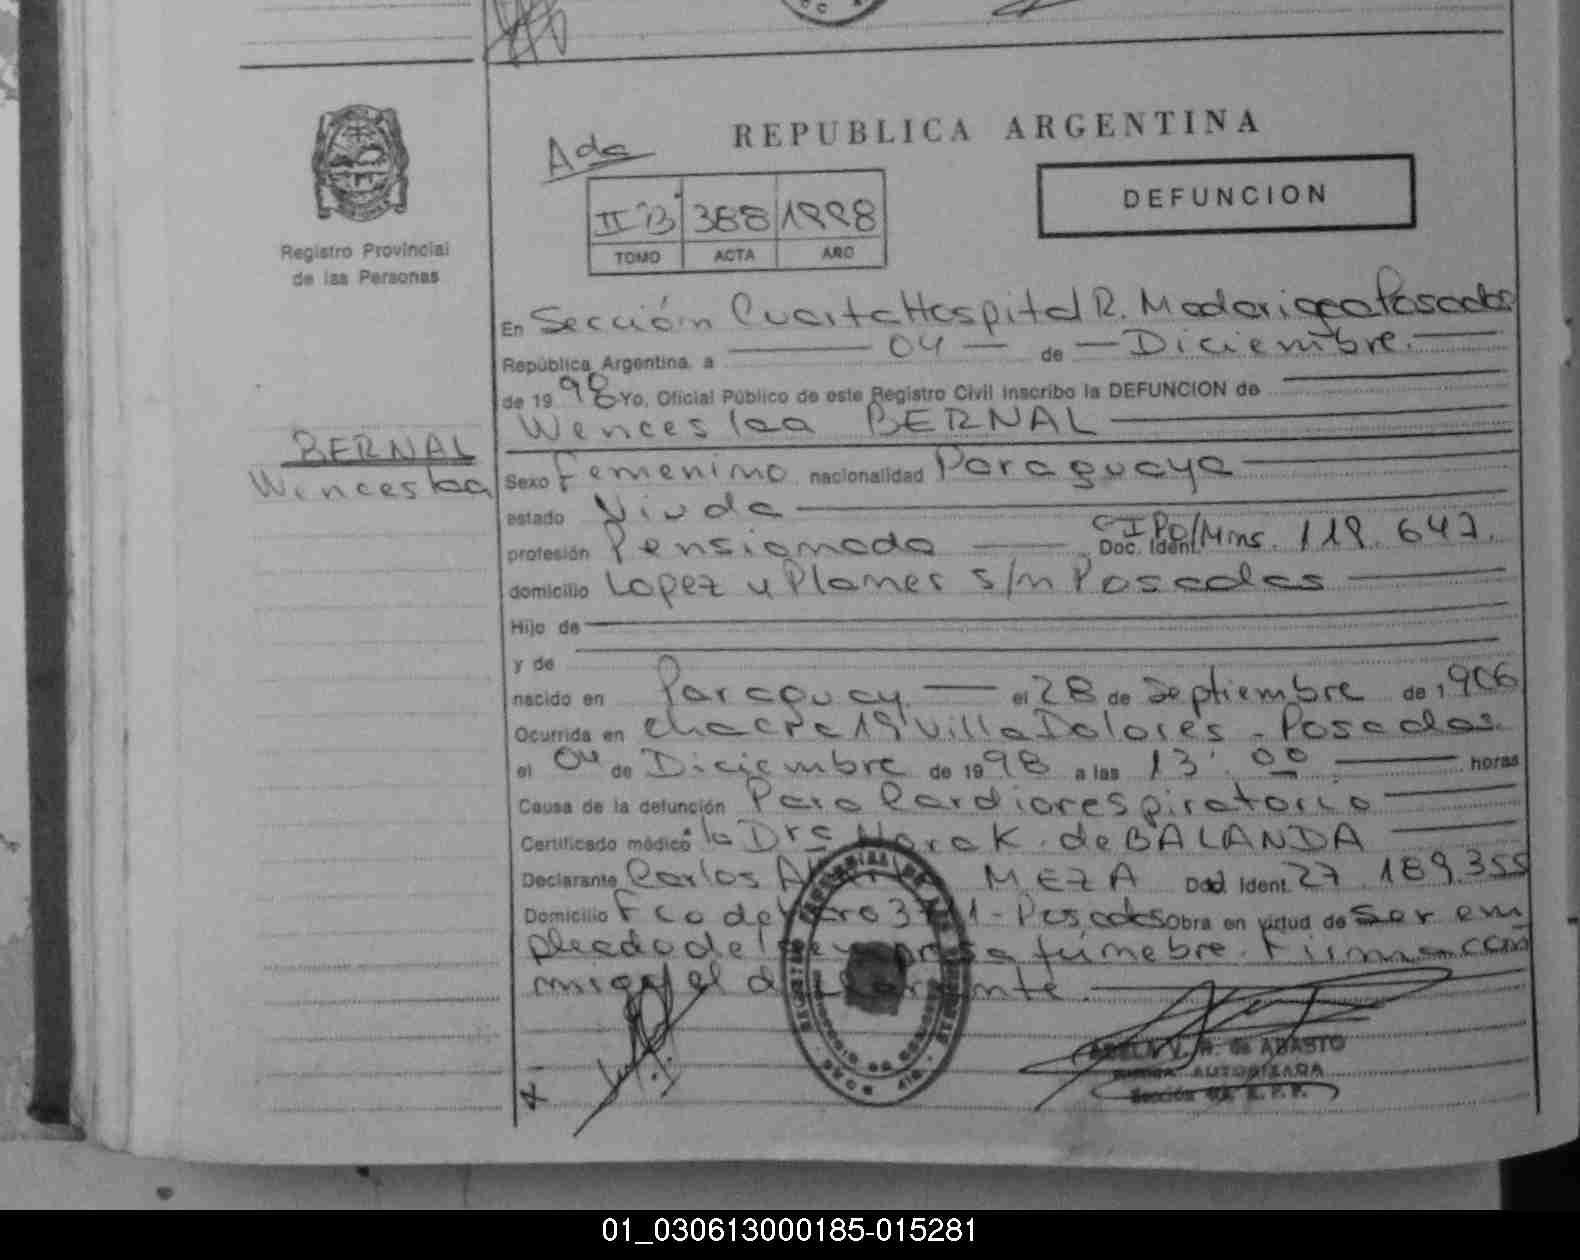 REPUBLICA ARGENTINA
Ada
DEFUNCION
II "B" 388 1998
TOMO ACTA AÑO
Registro Provincial
de las Personas
En Sección Cuarta Hospital R. Madariaga Posadas
República Argentina, a 04 de Diciembre.
de 1998 Yo, Oficial Público de este Registro Civil inscribo la DEFUNCION de
Wenceslaa BERNAL
BERNAL
Wenceslaa
Sexo Femenino nacionalidad Paraguaya
estado Viuda
profesión Pensionada Doc. Ident. CIPO/Mns. 119.647.
domicilio Lopez y Planes s/n Posadas
Hijo de
y de
nacido en Paraguay el 28 de Septiembre de 1906
Ocurrida en chacra 19 Villa Dolores - Posadas.
el 04 de Diciembre de 1998 a las 13:00 horas
Causa de la defunción Paro Cardiorespiratorio
Certificado médico la Dra K. de BALANDA
Declarante Carlos MEZA Doc. Ident. 27.189.355
Domicilio Fco de - Posadas obra en virtud de Ser em
pleado de la empresa fúnebre. Firma con
migo el declarante.
V. R. de ABASTO
FIRMA AUTORIZADA
Sección 4ta. R. P. P.
01_030613000185-015281